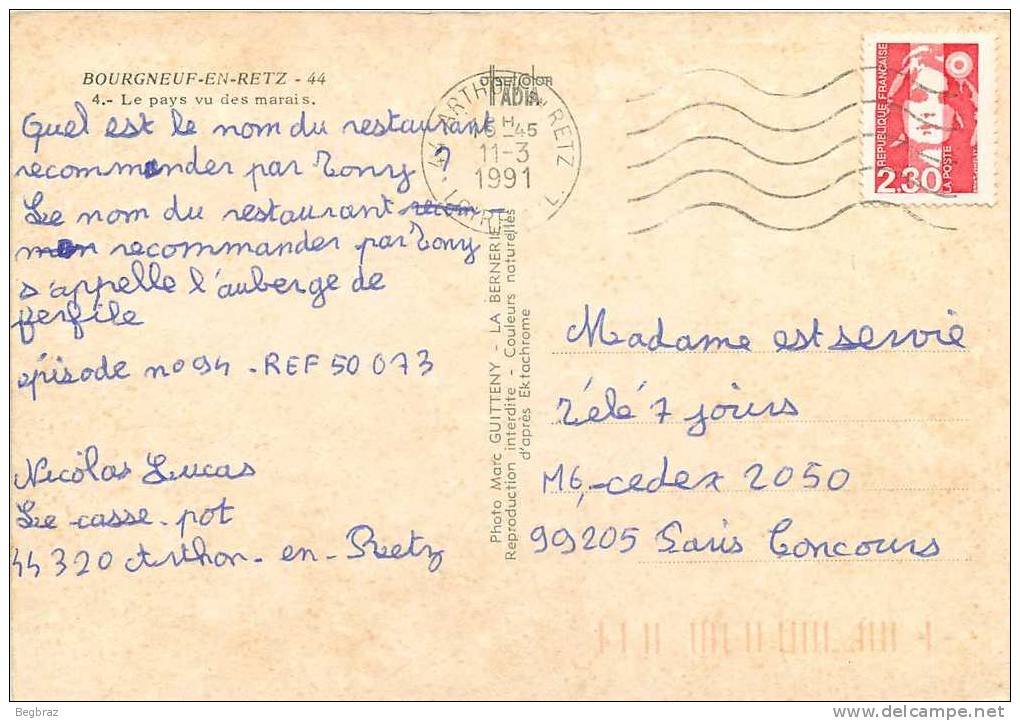 BOURGNEUF-EN-RETZ - 44
4.- Le pays vu des marais.
Quel est le nom du restaurant
recommander par Tony ?
Le nom du restaurant recom-
recommander par Tony
s'appelle l'auberge de
perfile
épisode no 94 - REF 50 073
Nicolas Lucas
Le casse-pot
44 320 Arthon-en-Retz
44 ARTHON EN RETZ
H
16-45
11-3
1991
REPUBLIQUE FRANÇAISE
2,30
LA POSTE
Photo Marc GUITTENY - LA BERNERIE
Reproduction interdite - Couleurs naturelles
d'après Ektachrome
Madame est servie
Télé 7 jours
M6,-cedex 2050
99205 Paris Concours
Begbraz
www.delcampe.net